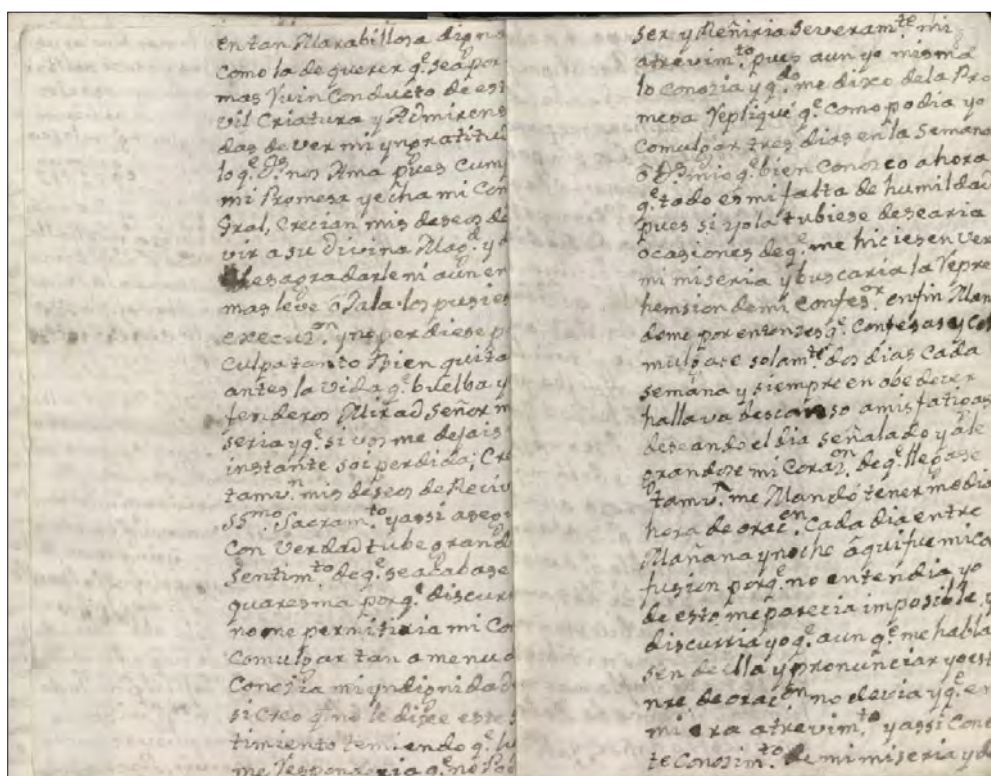 en tan Marabillosa digna
como la de querer q.e sea por
mas Ruin Conducto de est
vil Criatura y Admirens
das de ver mi yngratitu
lo q.e Ds. nos Ama pues cum
mi Promesa y echa mi Con
Gral, Crecian mis deseos de
vir a su Divina Mag.d y
desagradarle ni aun en
mas leve o Jala los pusies
execuz.on y no perdiese p
culpa tanto Bien quita
antes la vida q.e buelba
fenderos Mirad Señor m
seria y q.e si vos me dejais
instante soi perdida, Cre
tamv.n mis deseos de Reciv
SS.mo Sacram.to y assi aseg
con verdad tube grand
sentim.to de q.e se acabase
quaresma porq.e discur
no me permitiria mi Co
comulgar tan a menu
conozia mi yndignidad
si creo q.e no le dixe este
timiento temiendo q.e
me responderia q.e no
ser y Reñiria severam.te mi
atrevim.to pues aun yo misma
lo conozia y q.do me dixo de la Pro
mesa Repliqué q.e como podia yo
comulgar tres dias en la Semana
o Ds mio q.e bien conozco ahora
q.e todo es mi falta de humildad
pues si yo la tubiese desearia
ocasiones de q.e me hiciesen ver
mi miseria y buscaria la Repre
hension de mi confes.or en fin Man
dome por entonzes q.e confesase y Co
mulgase solam.te dos dias cada
semana y siempre en obedezer
hallava descanso a mis fatigas
deseando el dia señalado y ale
grandose mi Coraz.on de q.e llegase
tamv.n me Mandó tener media
hora de orac.on cada dia entre
Mañana y noche aqui fue mi co
fusion porq.e no entendia yo
de esto me parecia imposible y
discurria yo q.e aun q.e me habla
sen de illa y pronunciar yo est
nre de orac.on no devia y q.e en
mi era atrevim.to y assi Cono
te Conozim.to de mi miseria y